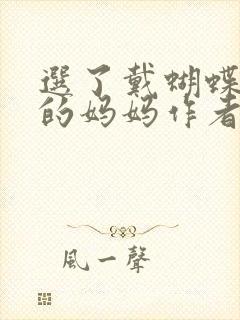 選了戴蝴蝶
的妈妈作者
風一聲